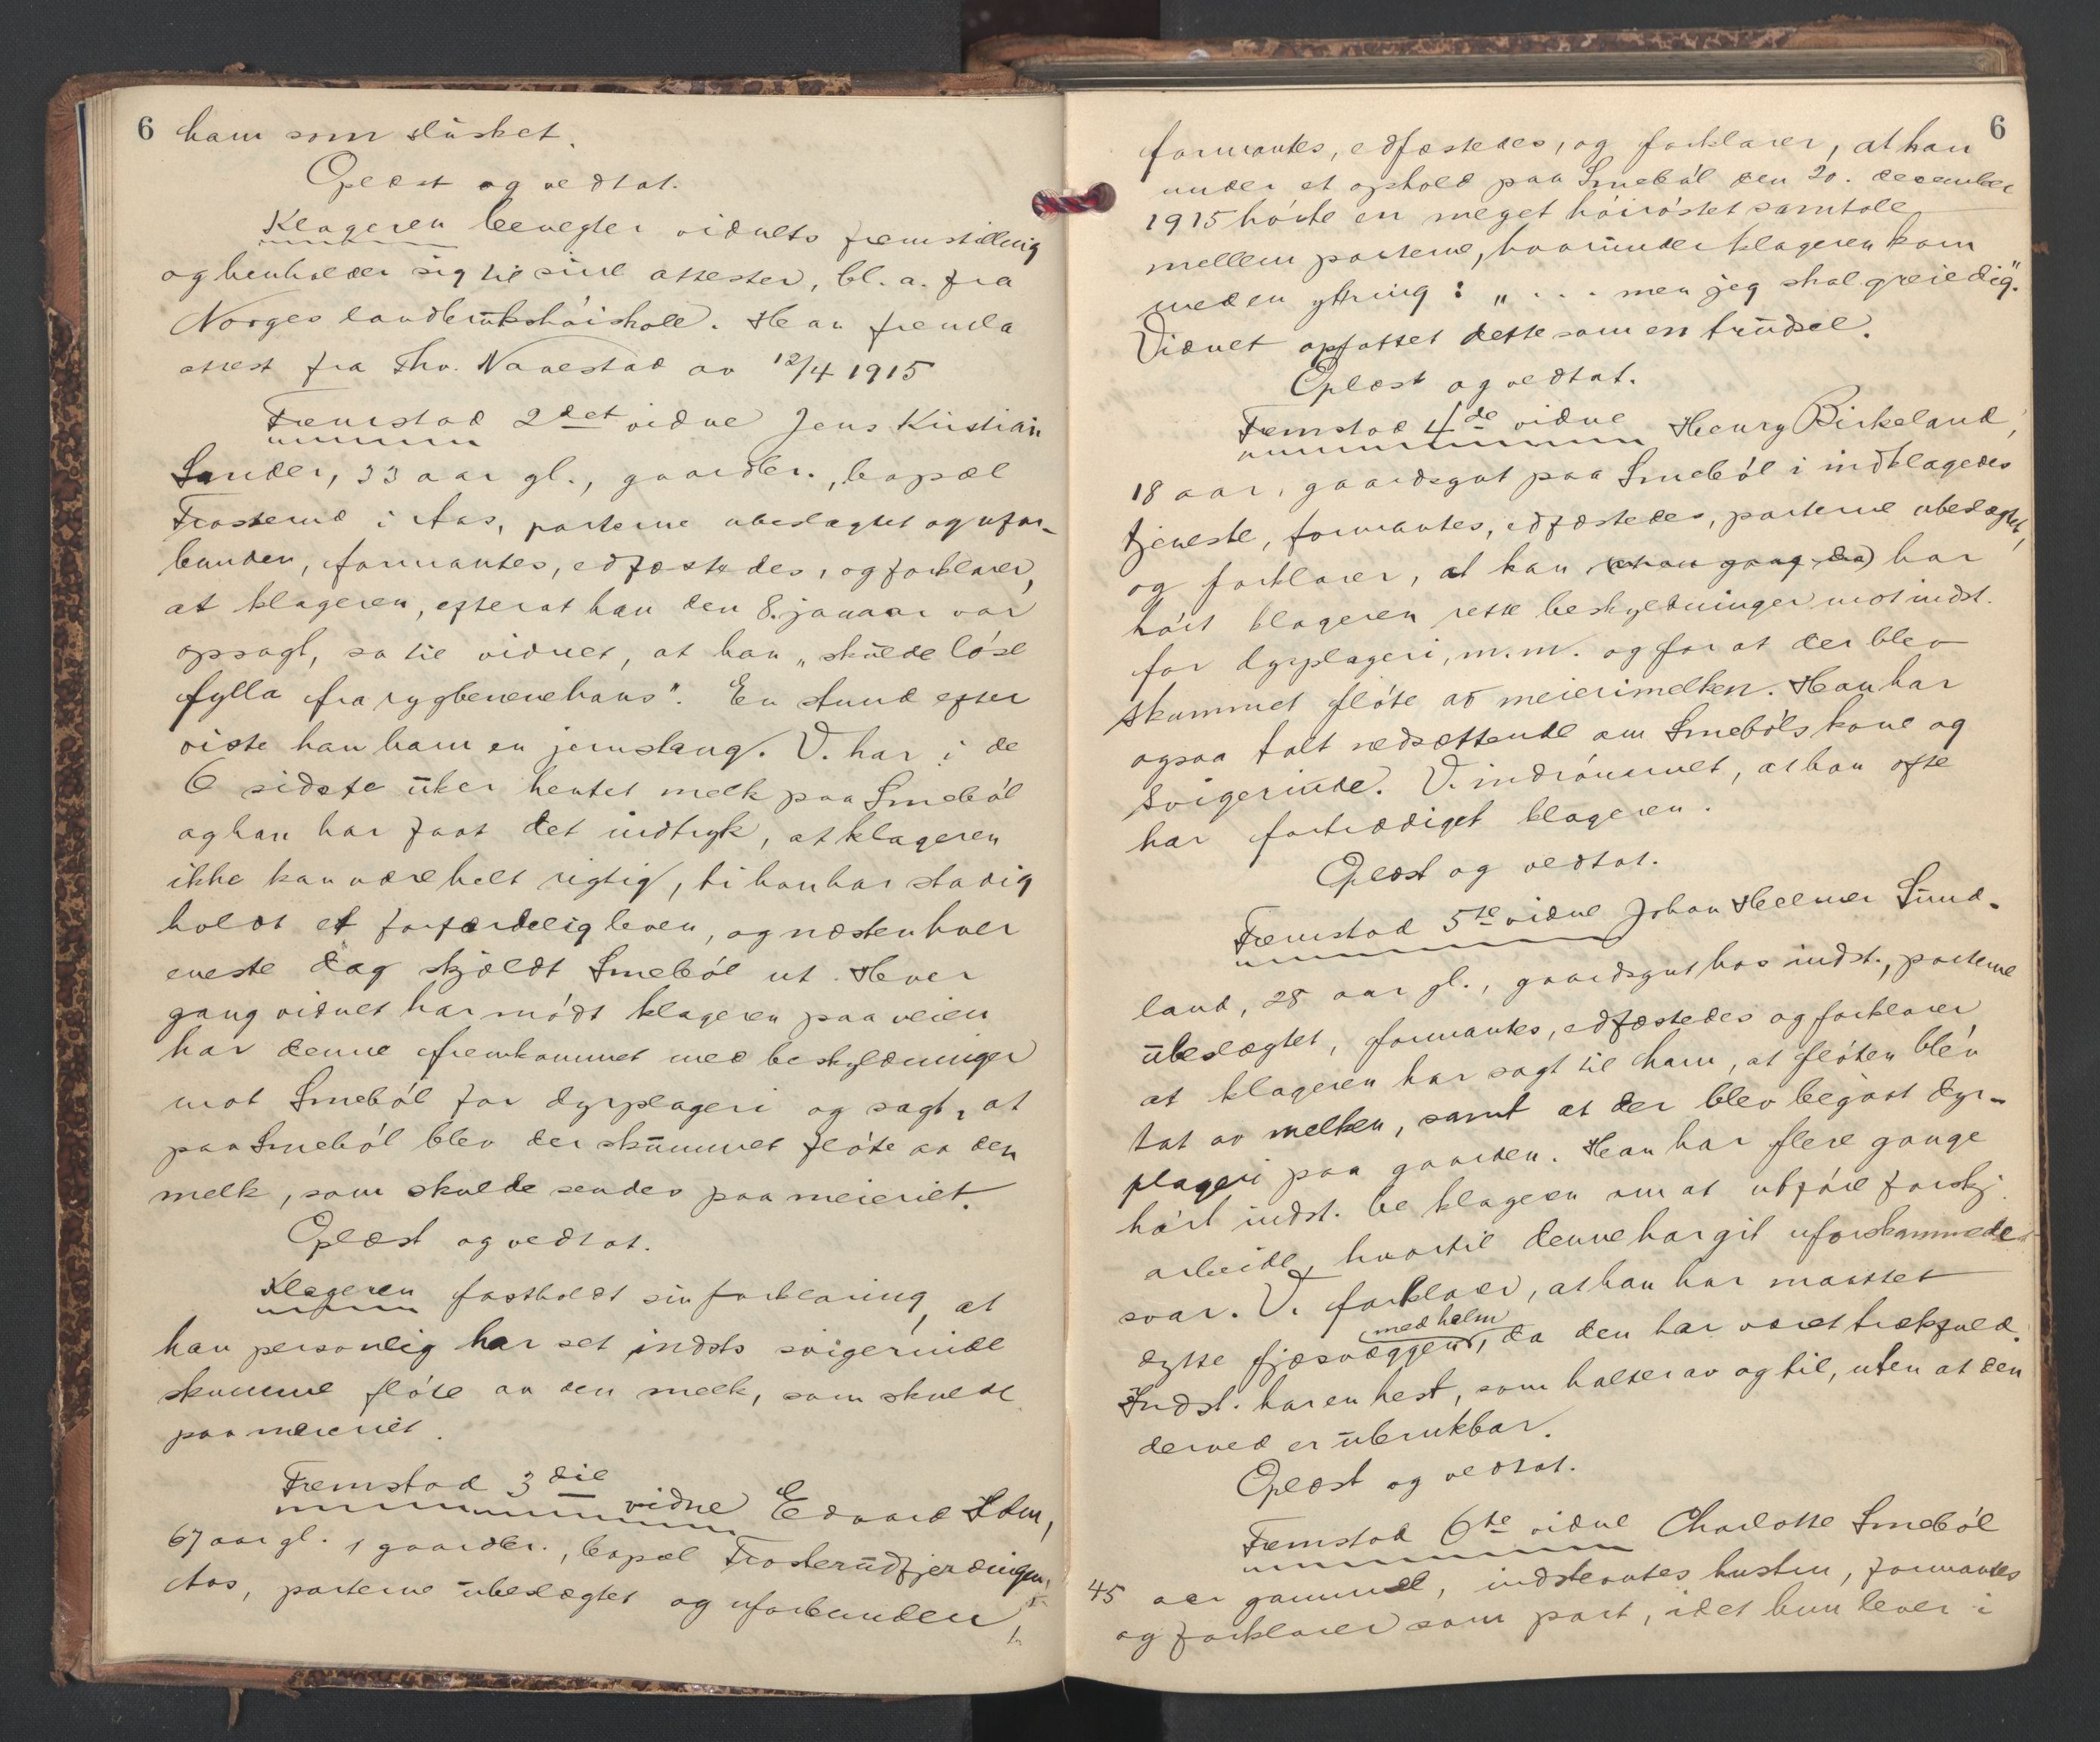 6 ham som slusket.
Oplæst og vedtat.
Klageren benegter vidnets fremstilling
og henholder sig til sine attester, bl. a. fra
Norges landbrukshöiskole. Han fremla
attest fra Thv. Navestad av 12/4 1915
Fremstod 2det vidne Jens Kristian
Sander, 33 aar gl., gaardbr., bopæl
Frosterud i Aas, parterne ubeslægtet og ufor-
bunden, formantes, edfæstedes, og forklarer,
at klageren, efterat han den 8. januar var
opsagt, sa til vidnet, at han „skulde löse
fylla fra rygbenene hans". En stund efter
viste han ham en jernstang. V. har i de
6 sidste uker hentet melk paa Smeböl
og han har faat det indtryk, at klageren
ikke kan være helt rigtig, ti han har stadig
holdt et forfærdelig leven, og næsten hver
eneste dag skjældt Smeböl ut. Hver
gang vidnet har mödt klageren paa veien
har denne fremkommet med beskyldninger
mot Smeböl for dyrplageri og sagt, at
paa Smeböl blev der skummet flöte av den
melk, som skulde sendes paa meieriet.
Oplæst og vedtat.
Klageren fastholdt sin forklaring, at
han personlig har set indsts svigerinde
skumme flöte av den melk, som skulde
paa meieriet.
Fremstod 3die vidne Edvard Holm,
67 aar gl., gaardbr., bopæl Frosterudfjerdingen,
Aas, parterne ubeslægtet og uforbunden,
6
formantes, edfæstedes, og forklarer, at han
under et ophold paa Smeböl den 20. december
1915 hörte en meget höiröstet samtale
mellem parterne, hvorunder klageren kom
med en ytring: „ . . . men jeg skal greie dig".
Vidnet opfattet dette som en trudsel.
Oplæst og vedtat.
Fremstod 4de vidne Henry Birkeland,
18 aar, gaardsgut paa Smeböl i indklagedes
tjeneste, formantes, edfæstedes, parterne ubeslægtet,
og forklarer, at han (en gang da) har
hört klageren rette beskyldninger mot indst.
for dyrplageri, m.m. og for at der blev
skummet flöte av meierimelken. Han har
ogsaa talt nedsættende om Smeböls kone og
svigerinde. V. indrömmet, at han ofte
har fortrædiget klageren.
Oplæst og vedtat.
Fremstod 5te vidne Johan Helmer Sund-
land, 28 aar gl., gaardsgut hos indst., parterne
ubeslægtet, formantes, edfæstedes og forklarer
at klageren har sagt til ham, at flöten blev
tat av melken, samt at der blev begaat dyr-
plageri paa gaarden. Han har flere gange
hört indst. be klageren om at utföre forskj.
arbeide, hvortil denne har git uforskammede
svar. V. forklarer, at han har maattet
dytte fjøsvæggen (med halm), da den har været trækfuld.
Indst. har en hest, som halter av og til, uten at den
derved er ubrukbar.
Oplæst og vedtat.
Fremstod 6te vidne Charlotte Smeböl
45 aar gammel, indstevntes hustru, formantes
og forklarer som part, idet hun lever i